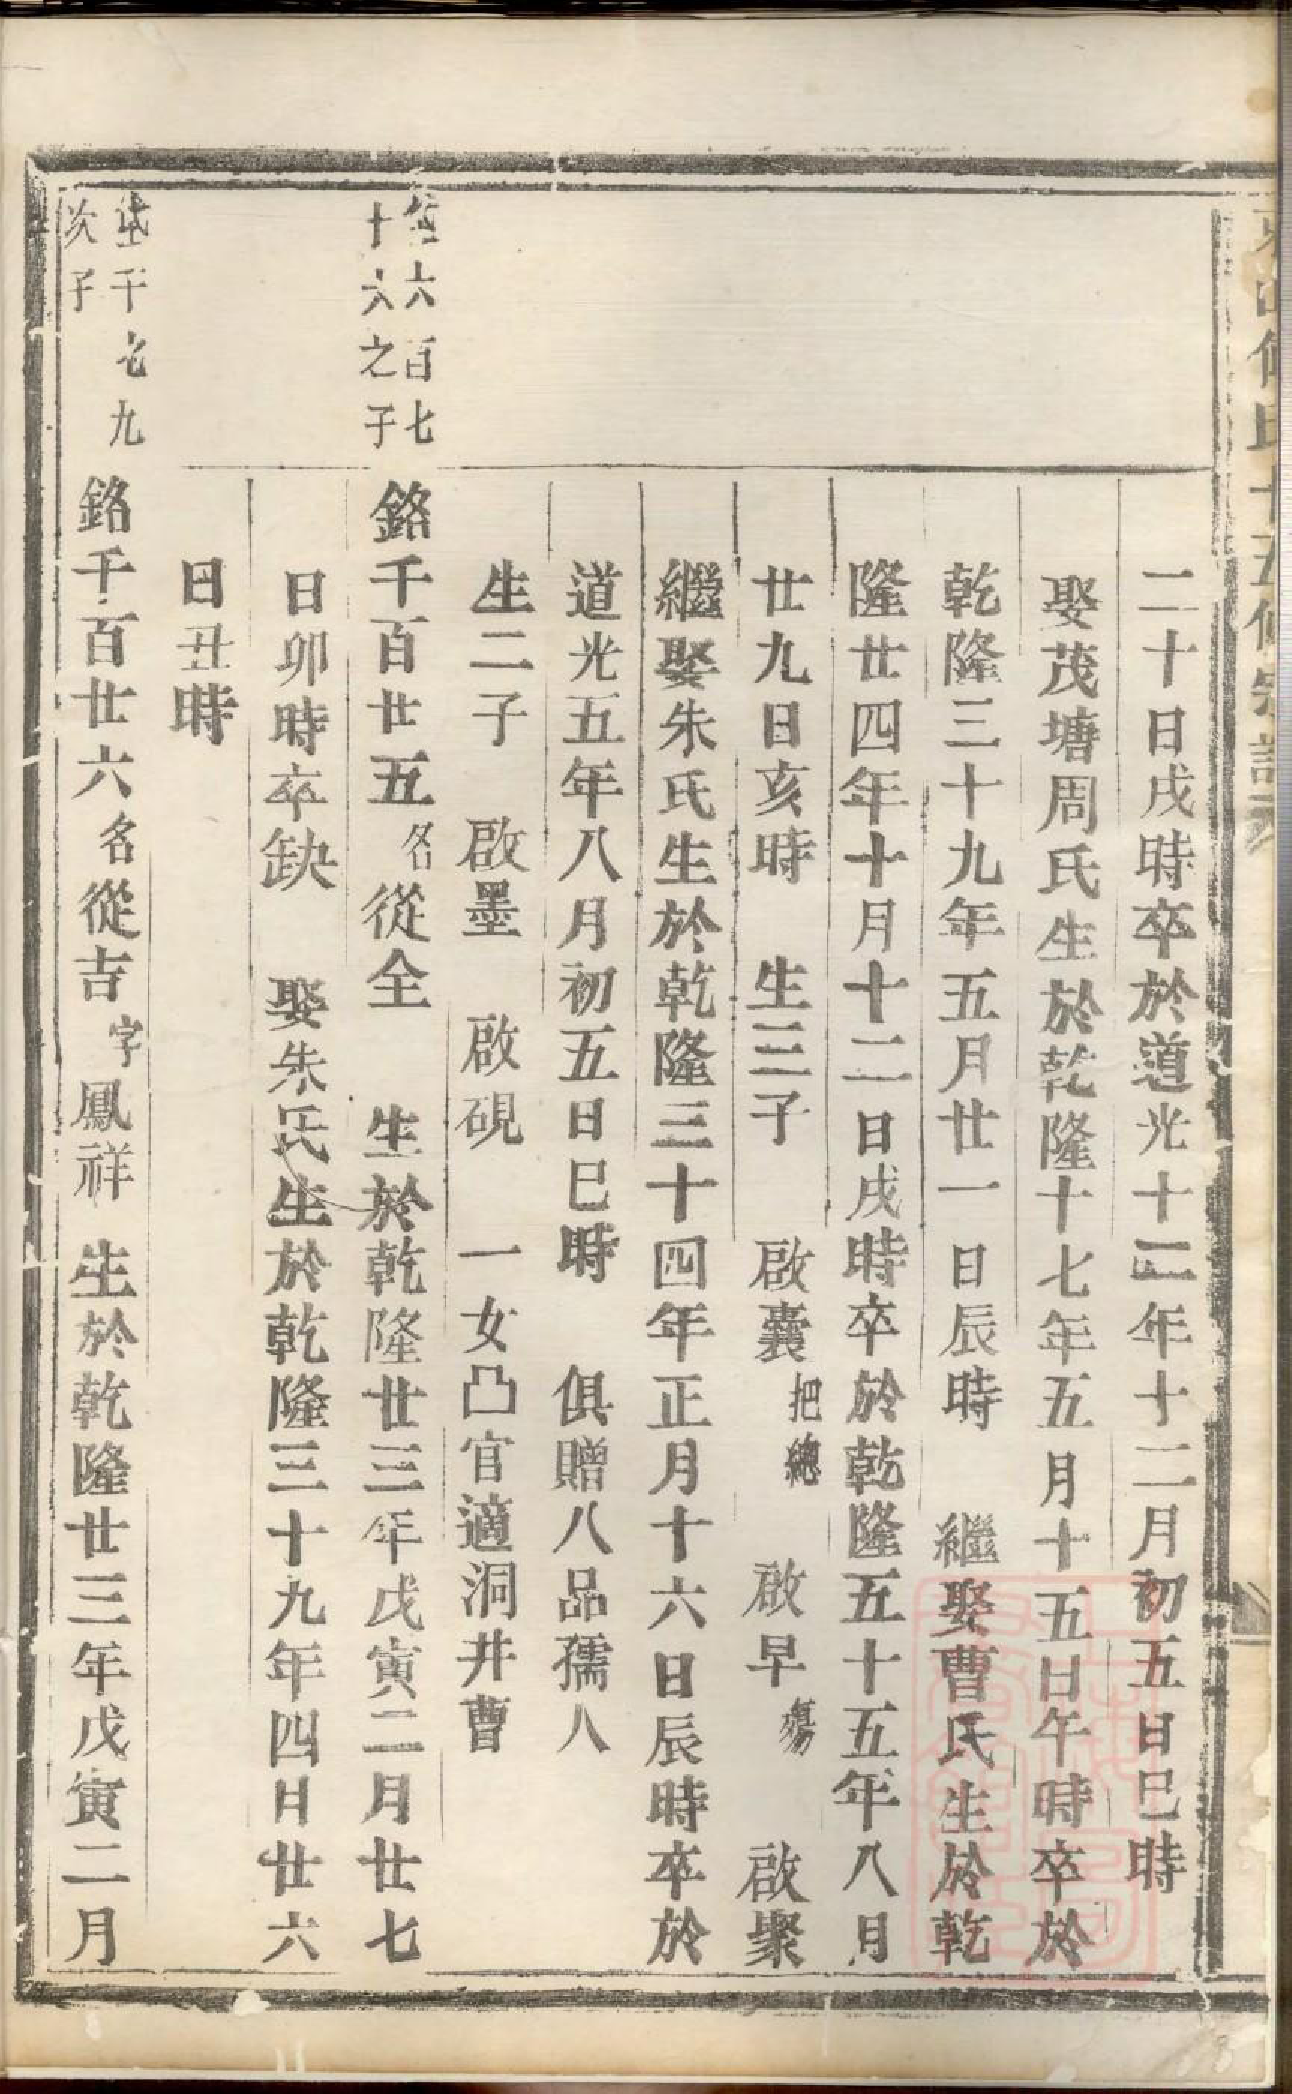 氏十五修宗譜
二十日戌時卒於道光十二年十二月初五日巳時
娶茂塘周氏生於乾隆十七年五月十五日午時卒於
乾隆三十九年五月廿一日辰時 繼娶曹氏生於乾
隆廿四年十月十二日戌時卒於乾隆五十五年八月
廿九日亥時 生三子 啟囊把總 啟早殤 啟聚
繼娶朱氏生於乾隆三十四年正月十六日辰時卒於
道光五年八月初五日巳時 俱贈八品孺人
生二子 啟墨 啟硯 一女凸官適洞井曹
六百七
十六之子
銘千百廿五名從全 生於乾隆廿三年戊寅二月廿七
日卯時卒缺 娶朱氏生於乾隆三十九年四日廿六
日丑時
千七九
次子
銘千百廿六名從吉字鳳祥 生於乾隆廿三年戊寅二月